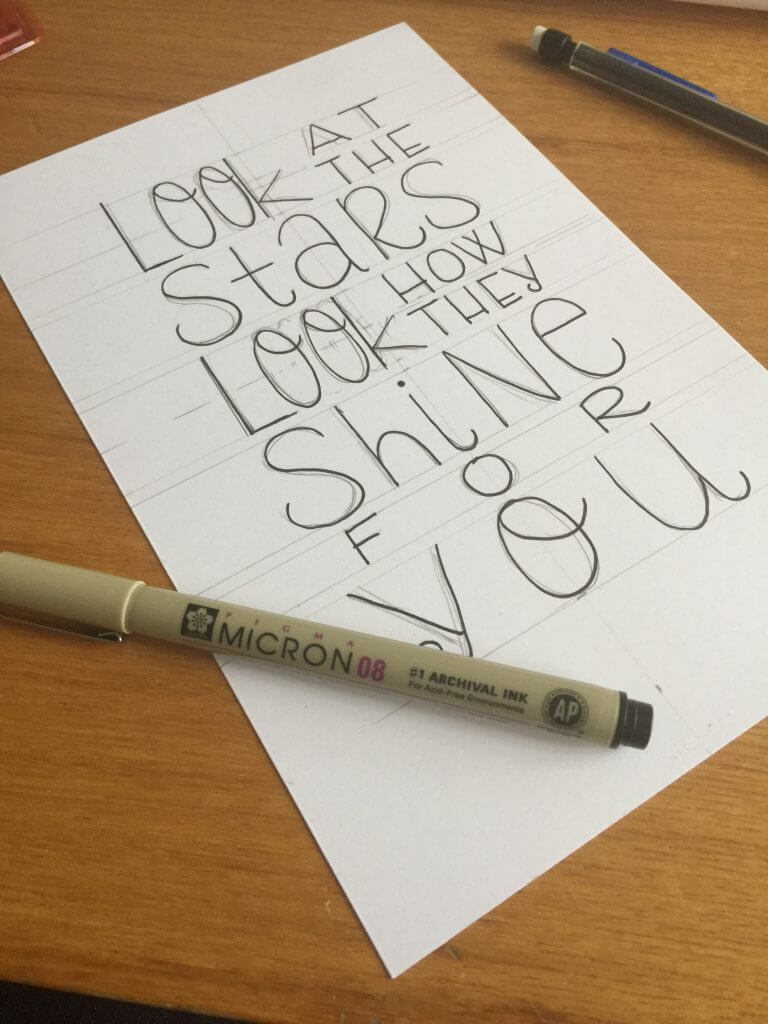 LOOK AT THE
StaRS
LOOK HOW THEY
ShiNe
FOR
you
PIGMA
MICRON 08
#1 ARCHIVAL INK
For Acid-Free Environments
AP